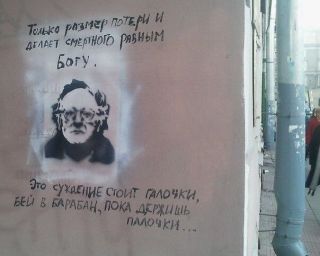 Только размер потери и
делает смертного равным
Богу.
Это суждение стоит галочки,
бей в барабан, пока держишь
палочки...